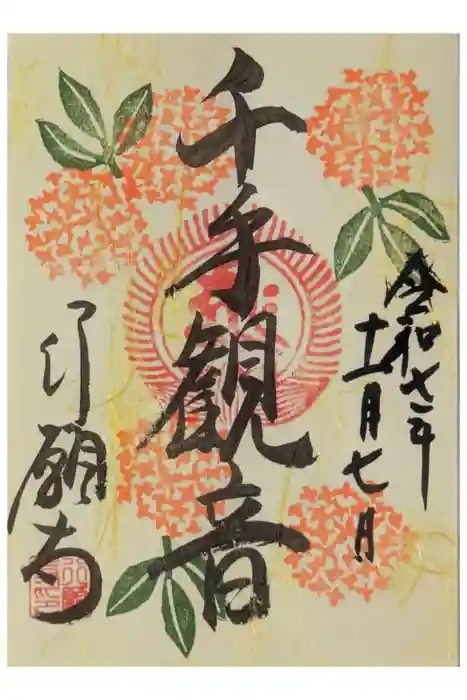 令和七年
十一月七日
千手観音
行願寺